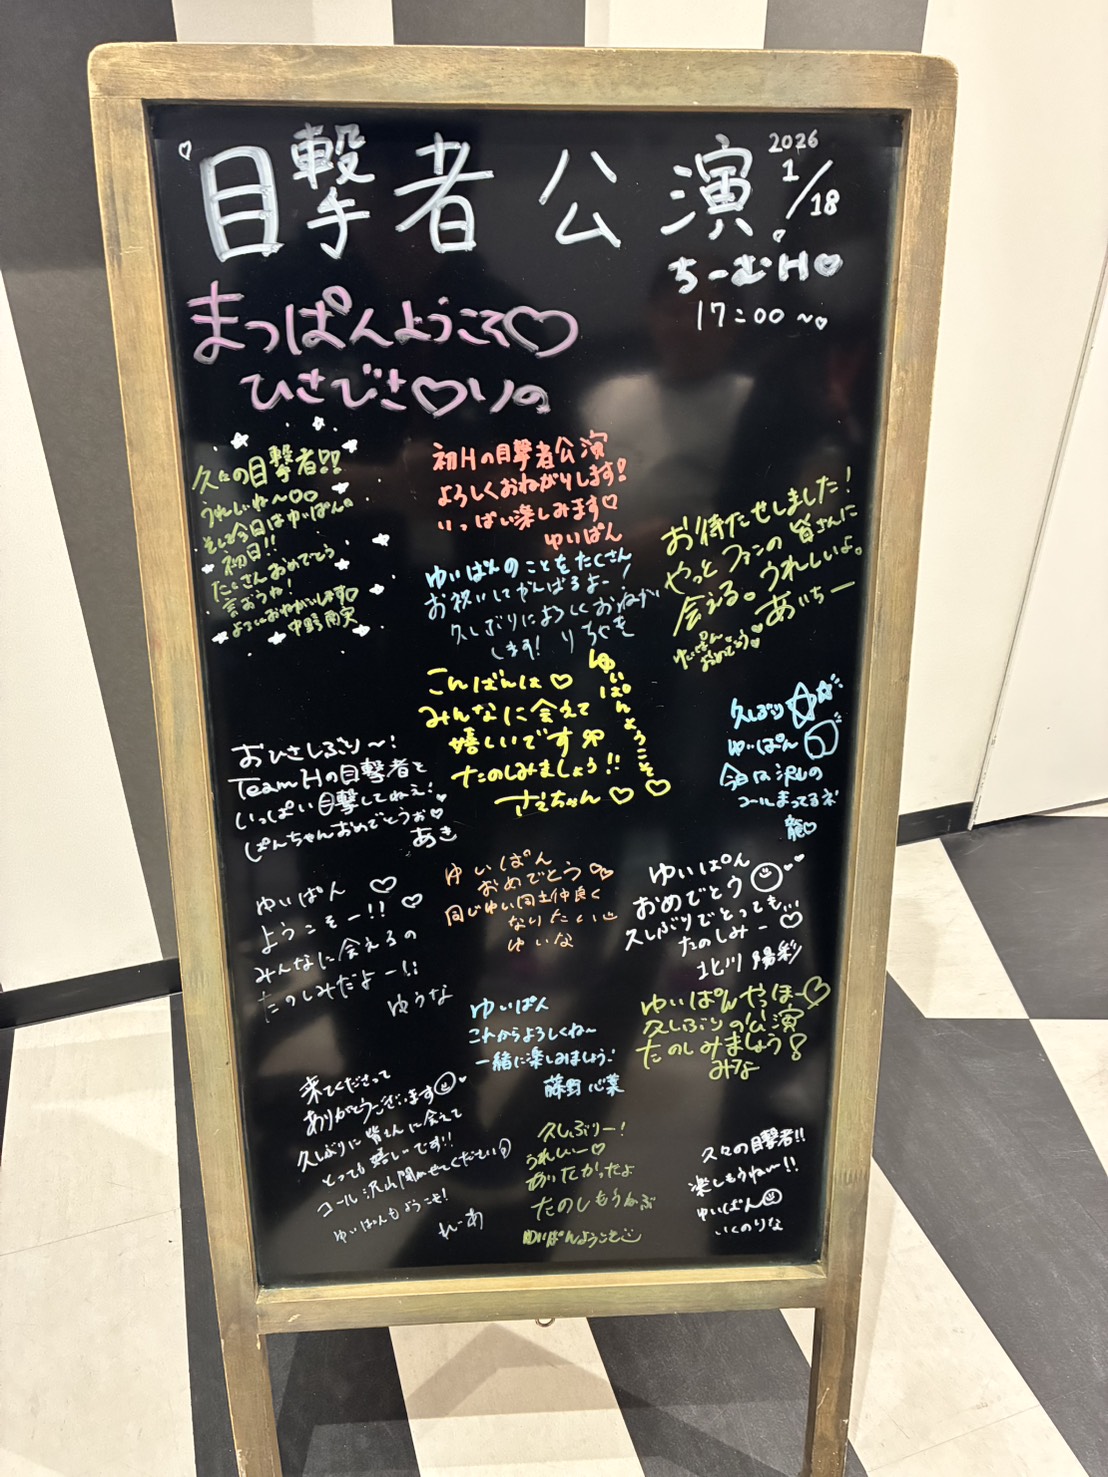 目撃者公演
2026
1/18
ちーむH♡
17:00~♡
まっぱんようこそ♡
ひさびさ♡りの
久々の目撃者!!
うれしいね〜
そして今日はゆいぱんの
初日!!
たくさんおめでとう
言おうね!
よろしくおねがいします♡
中野南実
初Hの目撃者公演
よろしくおねがいします!
いっぱい楽しみます♡
ゆいぱん
お待たせしました!
やっとファンの皆さんに
会える。うれしいよ。
あいちー
ゆいぱん
おめでとう♡
ゆいぱんのことをたくさん
お祝いしてがんばるよー!
久しぶりによろしくおねがい
します!
こんばんは♡
みんなに会えて
嬉しいです
たのしみましょう!!
さえちゃん♡
ゆいぱんようこそ♡
久しぶり
ゆいぱん
今日は沢山の
コールまってるネ!
龍♡
おひさしぶり〜!
TeamHの目撃者を
いっぱい目撃してねえ!
ぱんちゃんおめでとうぉ♡
あき
ゆいぱん
おめでとう♡
同じゆい同士仲良く
なりたい
ゆいな
ゆいぱん
おめでとう
久しぶりでとっても...
たのしみー♡
北川陽彩
ゆいぱん♡
ようこそー!!♡
みんなに会えるの
たのしみだよー!!
ゆうな
ゆいぱん
これからよろしくね〜
一緒に楽しみましょう!
藤野心葉
ゆいぱんやっほー♡
久しぶりの公演
たのしみましょう!
みな
来てくださって
ありがとうございます
久しぶりに皆さんに会えて
とっても嬉しいです!!
コール沢山聞かせてください
ゆいぱんもようこそ!
れーあ
久しぶりー!
うれしいー♡
あいたかったよ
たのしもうね
ゆいぱんようこそ
久々の目撃者!!
楽しもうねー!!
ゆいぱん
いくのりな